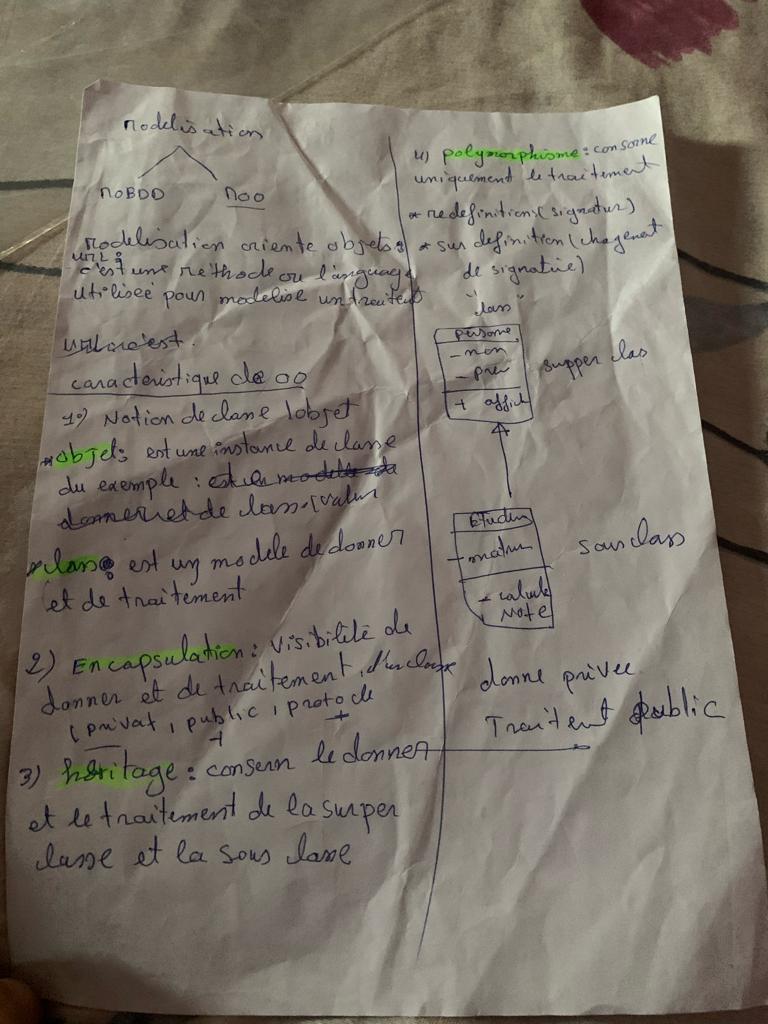 modelisation
MOBDD MOO
Modelisation oriente objets:
UML:
c'est une méthode ou language
utilisée pour modelise un traitent
UML c'est.
caracteristique de OO
1°) Notion de classe / objet
*objet: est une instance de classe
du exemple :
donner et de class. (valeur
*class: est un modele de donner
et de traitement
2) Encapsulation: visibilité de
donner et de traitement, d'un classe
(privat, public, protocte
- + +
3) héritage: consern le donner
et le traitement de la surper
classe et la sous classe
4) polymorphisme: conserne
uniquement le traitement
* redefinitions (signatur)
* sur definition (chagenent
de signature)
"class"
persone
- nom
- pren
+ affich
supper clas
Etudien
- matru
+ calcule
Note
sous class
donne privee
Traitent public